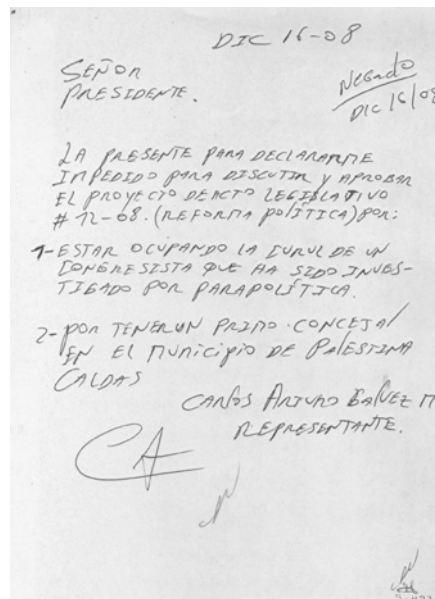 DIC 16-08
SEÑOR
PRESIDENTE.
Negado
DIC 16/08
LA PRESENTE PARA DECLARARME
IMPEDIDO PARA DISCUTIR Y APROBAR
EL PROYECTO DE ACTO LEGISLATIVO
# 12-08. (REFORMA POLÍTICA) POR:
1- ESTAR OCUPANDO LA CURUL DE UN
CONGRESISTA QUE HA SIDO INVES-
TIGADO POR PARAPOLÍTICA.
2- POR TENER UN PRIMO CONCEJAL
EN EL MUNICIPIO DE PALESTINA
CALDAS
CARLOS ARTURO GALVEZ M
REPRESENTANTE.
CA